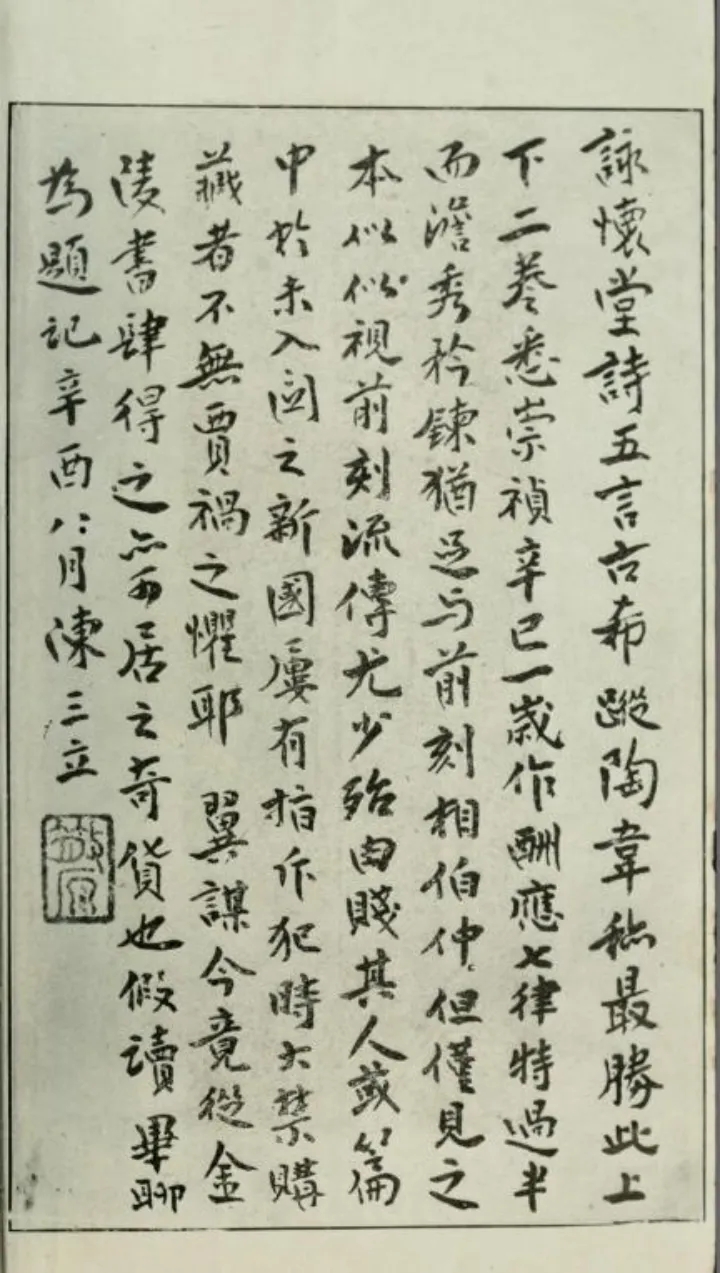 詠懷堂詩五言古希蹤陶韋称最勝此上
下二卷悉崇禎辛巳一歲作酬應七律特過半
而澹秀矜鍊猶足与前刻相伯仲但僅見之
本似似視前刻流傳尤少殆由賤其人或篇
中於未入関之新國屢有指斥犯時大禁購
藏者不無賈禍之懼耶 翼謀今竟從金
陵書肆得之亦可居之奇貨也假讀畢聊
為題記辛酉八月陳三立
散原